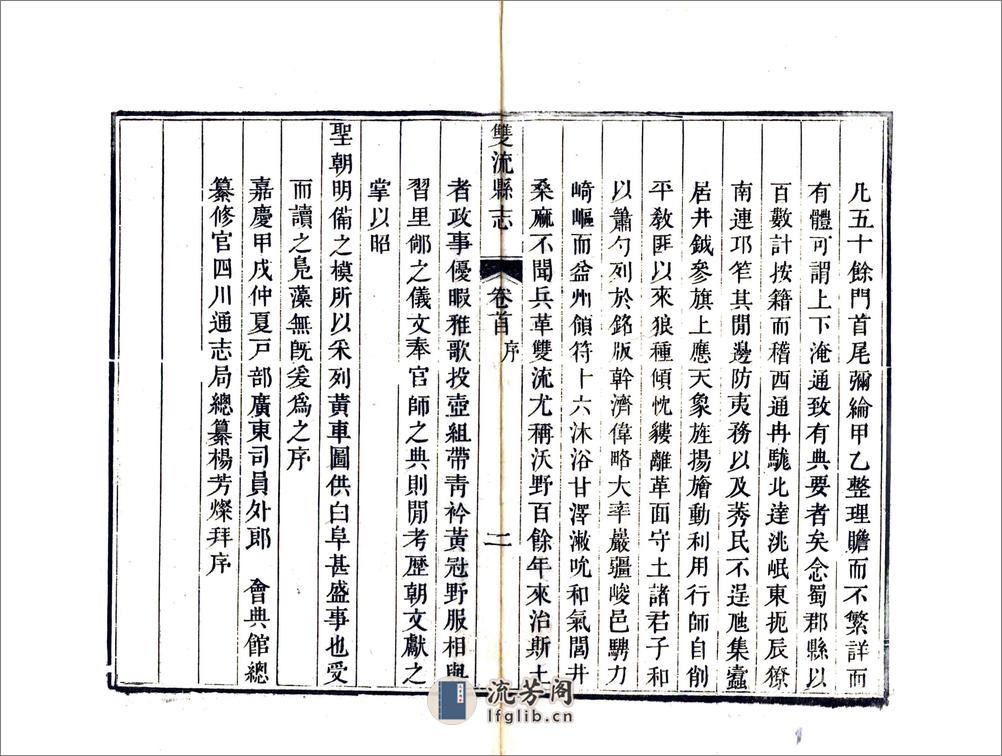 凡五十餘門首尾彌綸甲乙整理贍而不繁詳而
有體可謂上下淹通致有典要者矣念蜀郡縣以
百數計按籍而稽西通冉駹北達洮岷東扼辰獠
南連邛筰其閒邊防夷務以及莠民不逞虺集蠭
居井鉞參旗上應天象旌揚旝動利用行師自削
平敎匪以來狼種傾忱貗離革面守土諸君子和
以簫勺列於銘版幹濟偉略大率嚴疆峻邑騁力
崎嶇而益州領符十六沐浴甘澤漱吮和氣閭井
桑麻不聞兵革雙流尤稱沃野百餘年來治斯土
雙流縣志 卷首 序 二
者政事優暇雅歌投壺組帶靑衿黃冠野服相與
習里鄕之儀文奉官師之典則閒考歷朝文獻之
掌以昭
聖朝明備之模所以采列黃車圖供白阜甚盛事也受
而讀之鳧藻無旣爰爲之序
嘉慶甲戌仲夏戸部廣東司員外郎 會典館總
纂修官四川通志局總纂楊芳燦拜序
流芳阁
lfglib.cn